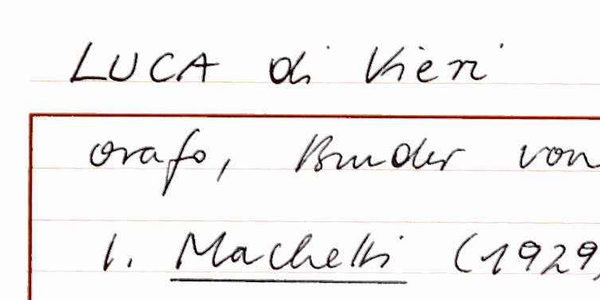 LUCA di Vieri
orafo, Bruder von
1. Machetti (1929)